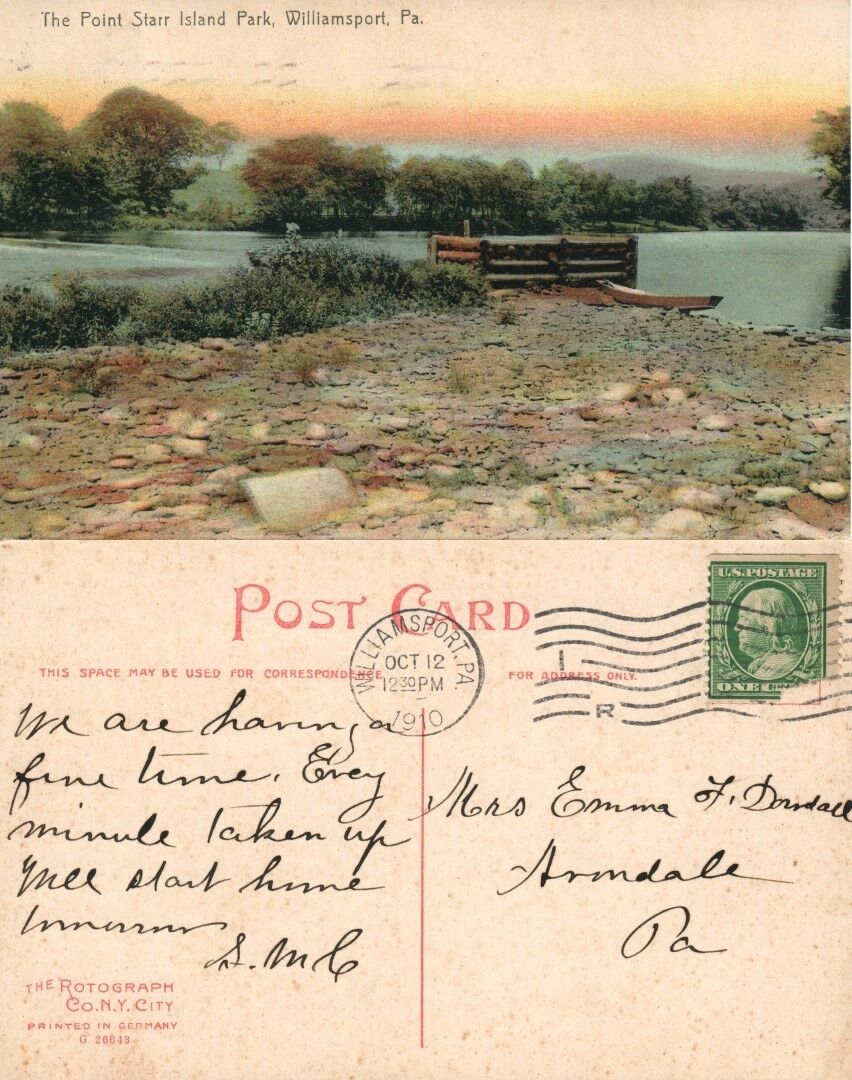 The Point Starr Island Park, Williamsport, Pa.
POST CARD
U.S. POSTAGE
WILLIAMSPORT, PA.
OCT 12
12 30 PM
1910
I
R
THIS SPACE MAY BE USED FOR CORRESPONDENCE
FOR ADDRESS ONLY.
ONE
We are having a
fine time. Evey
minute taken up
Will start home
tomorrow
S. M. C
Mrs Emma F.
Avondale
Pa
THE ROTOGRAPH
CO. N.Y. CITY
PRINTED IN GERMANY
G 26643